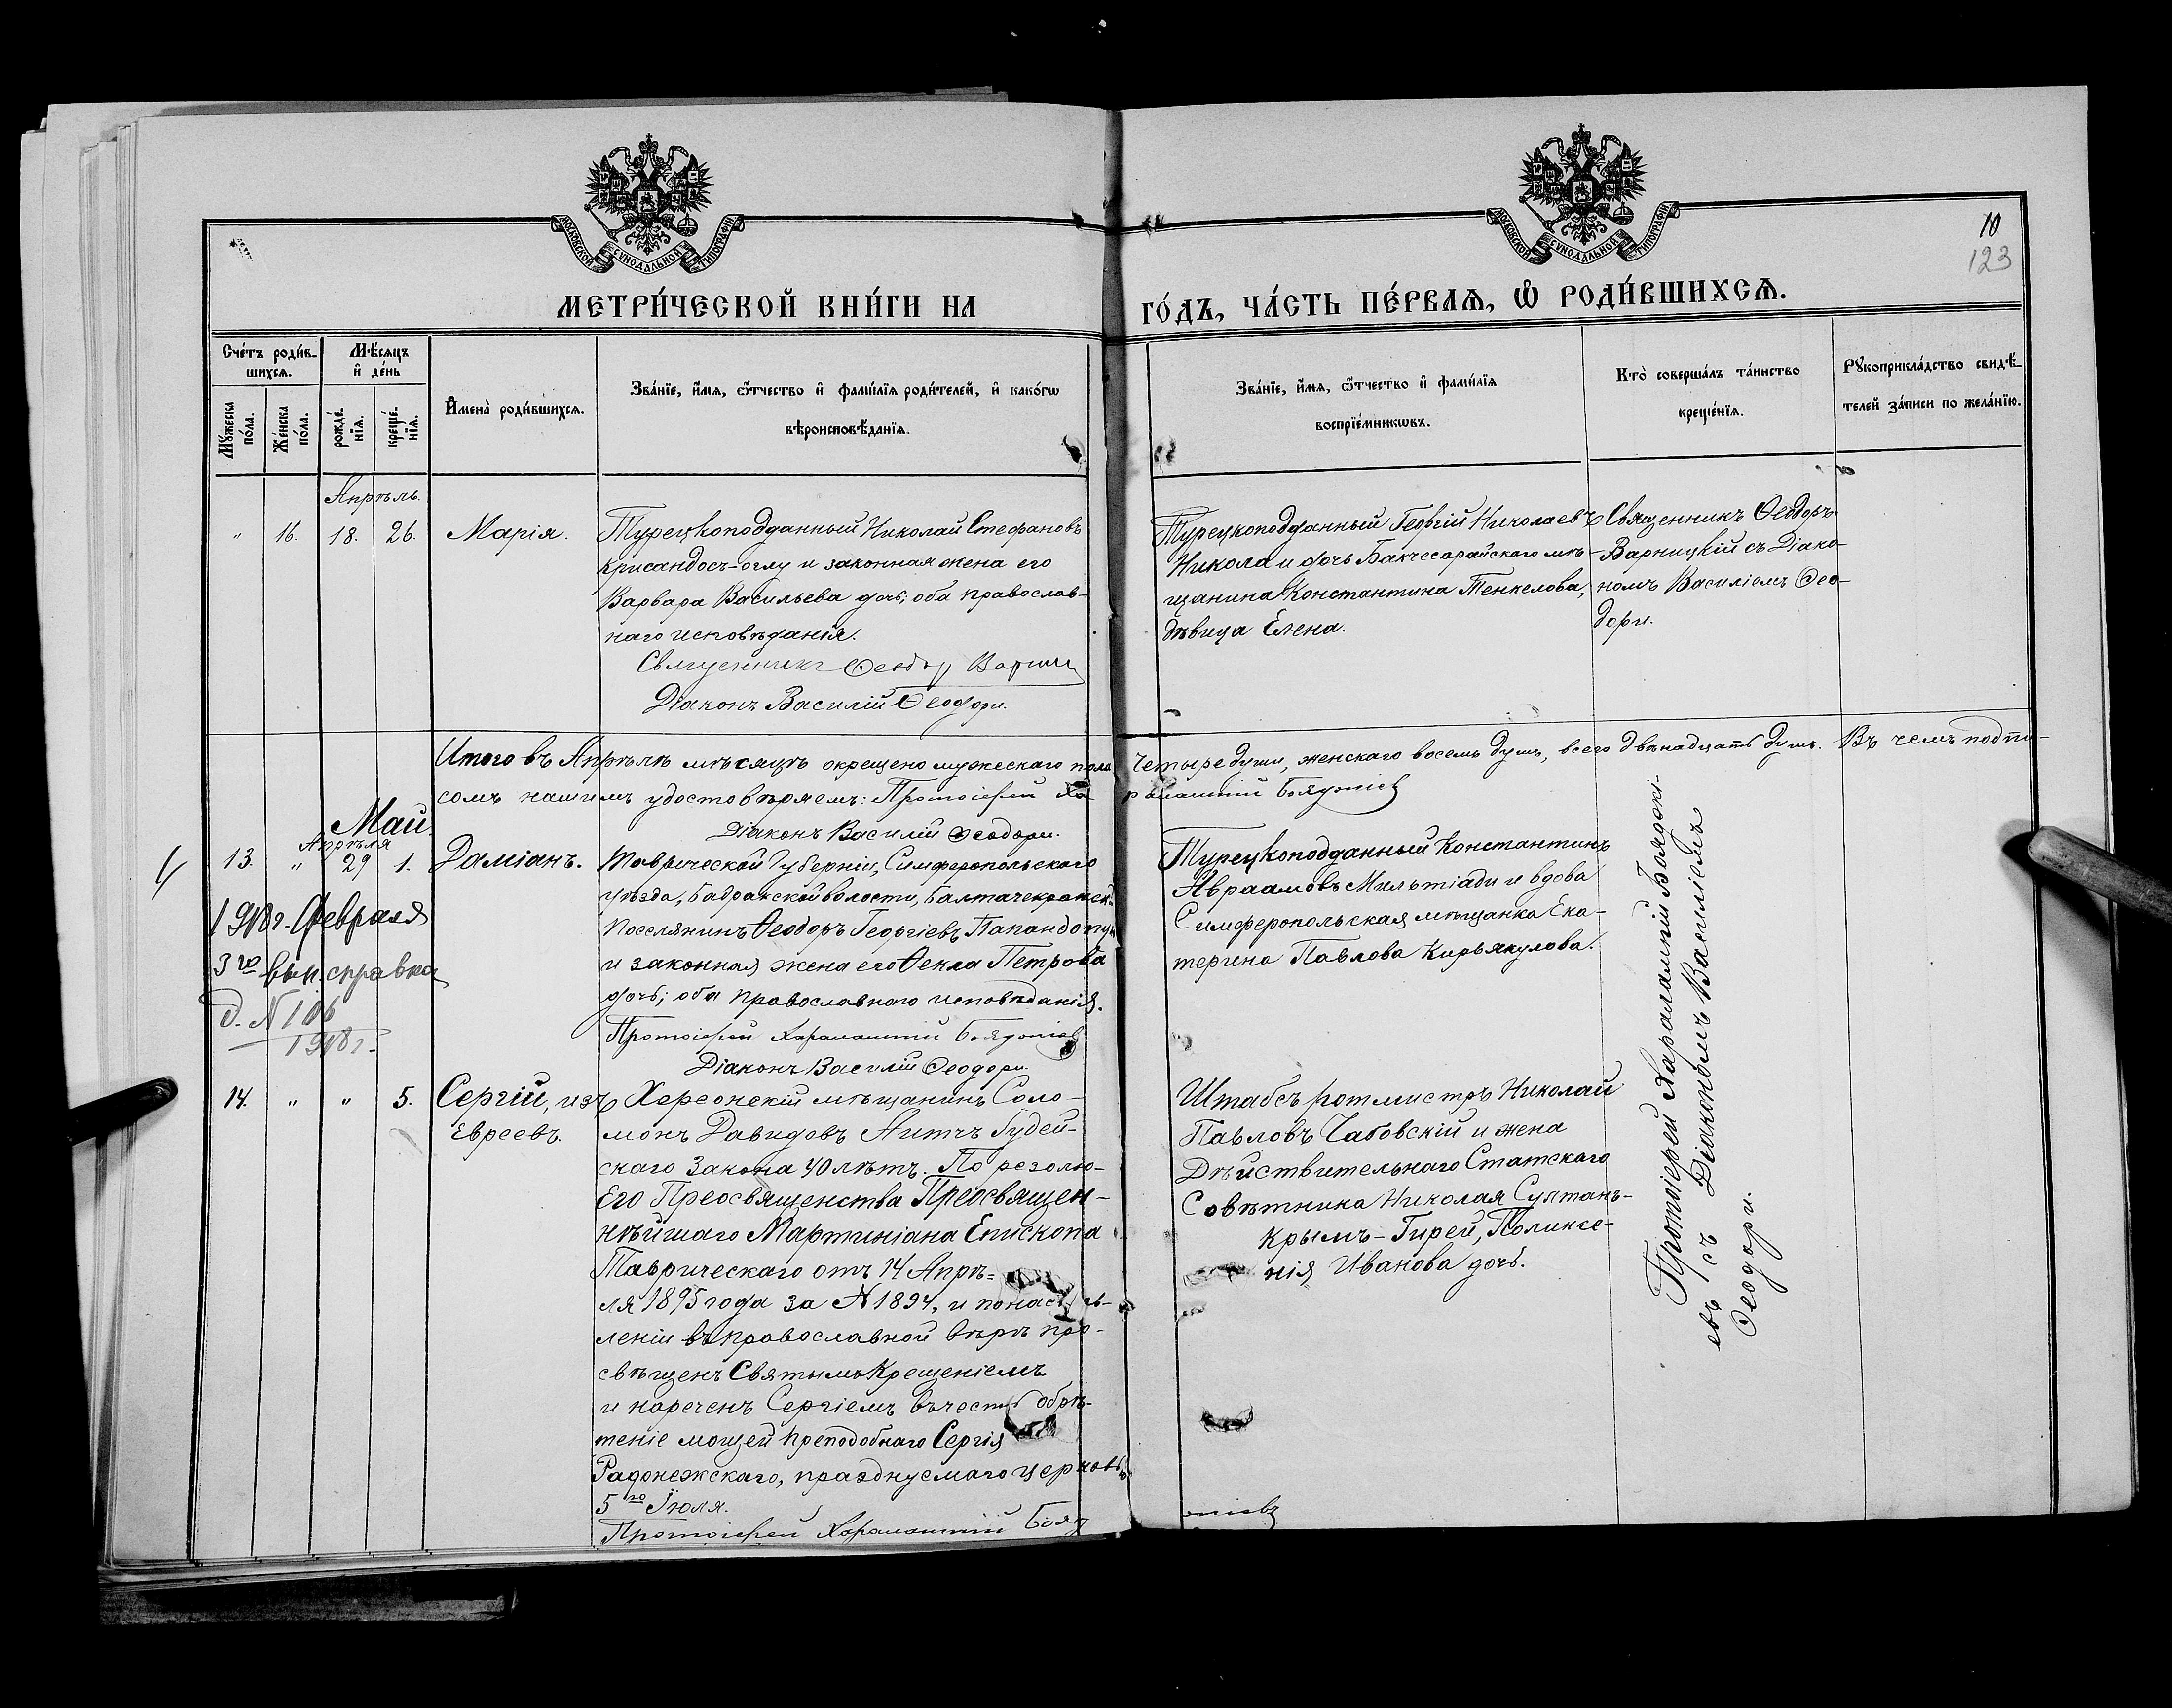 МОСКОВСКОЙ СѴНОДАЛЬНОЙ ТИПОГРАФІИ
МОСКОВСКОЙ СѴНОДАЛЬНОЙ ТИПОГРАФІИ
10
123
МЕТРИ́ЧЕСКОЙ КНИ́ГИ НА
ГО́ДЪ, ЧА́СТЬ ПЕ́РВАѦ, Ѽ РОДИ́ВШИХСѦ.
Сче́тъ роди́в-
шихсѧ.
Мѣ́сѧцъ
и҆ де́нь
Мꙋжеска
по́ла.
Же́нска
по́ла.
рожде́-
нїѧ.
креще́-
нїѧ.
И҆мена̀ роди́вшихсѧ.
Зва́нїе, и҆́мѧ, ѻ҆́тчество и҆ фами́лїѧ роди́телей, и҆ како́гѡ
вѣроисповѣ́данїѧ.
Зва́нїе, и҆́мѧ, ѻ҆́тчество и҆ фами́лїѧ
воспрїе́мникѡвъ.
Кто̀ соверша́лъ та́инство
креще́нїѧ.
Рꙋкоприкла́дство свидѣ́-
телей за́писи по жела́нїю.
Апрѣль.
" 16. 18. 26. Марія.
Турецкоподданный Николай Стефановъ
Крисандосъ-оглу и законная жена его
Варвара Васильева дочь; оба православ-
наго исповѣданія.
Священникъ Ѳеодоръ Варниц
Діаконъ Василій Ѳеодори.
Турецкоподданный Георгій Николаевъ
Никола и дочь Бакчесарайскаго мѣ-
щанина Константина Тенкелова,
дѣвица Елена.
Священникъ Ѳеодоръ
Варницкій съ Діако-
номъ Василіемъ Ѳео-
дори.
Итого въ Апрѣлѣ мѣсяцѣ окрещено мужескаго пола четыре души, женскаго восемь душъ, всего двѣнадцать душъ. Въ чемъ подпи-
сомъ нашимъ удостовѣряемъ: Протоіерей Харалампій Бояджіевъ
Діаконъ Василій Ѳеодори.
Май.
Апрѣля
13. " 29 1. Даміанъ.
1918 г. Февраля
3го вып. справка
д. N 106
1918 г.
Таврической Губерніи, Симферопольскаго
уѣзда, Бадракской волости, Балтачекракскій
поселянинъ Ѳеодоръ Георгіевъ Папандопу
и законная жена его Ѳекла Петрова
дочь; оба православнаго исповѣданія.
Протоіерей Харалампій Бояджіевъ
Діаконъ Василій Ѳеодори.
Турецкоподданный Константинъ
Авраамовъ Мильтіади и вдова
Симферопольская мѣщанка Ека-
терина Павлова Кирьякулова.
Протоіерей Харалампій Бояджі-
евъ съ Діакономъ Василіемъ
Ѳеодори.
14. " " 5. Сергій, изъ
Евреевъ.
Херсонскій мѣщанинъ Соло-
монъ Давидовъ Аитъ Іудей-
скаго Закона 40 лѣтъ. По резолю-
Его Преосвященства Преосвящен-
нѣйшаго Мартиніана Епископа
Таврическаго отъ 14 Апрѣ-
ля 1895 года за N 1894, и по настав-
леніи въ православной вѣрѣ про-
свѣщенъ Святымъ Крещеніемъ
и нареченъ Сергіемъ въ честь обрѣ-
теніе мощей преподобнаго Сергія
Радонежскаго, празднуемаго церковью
5го Іюля.
Протоіерей Харалампій Бояджіевъ
Штабсъ ротмистръ Николай
Павловъ Чабовскій и жена
Дѣйствительнаго Статскаго
Совѣтника Николая Султанъ-
Крымъ-Гирей, Поликсе-
нія Иванова дочь.